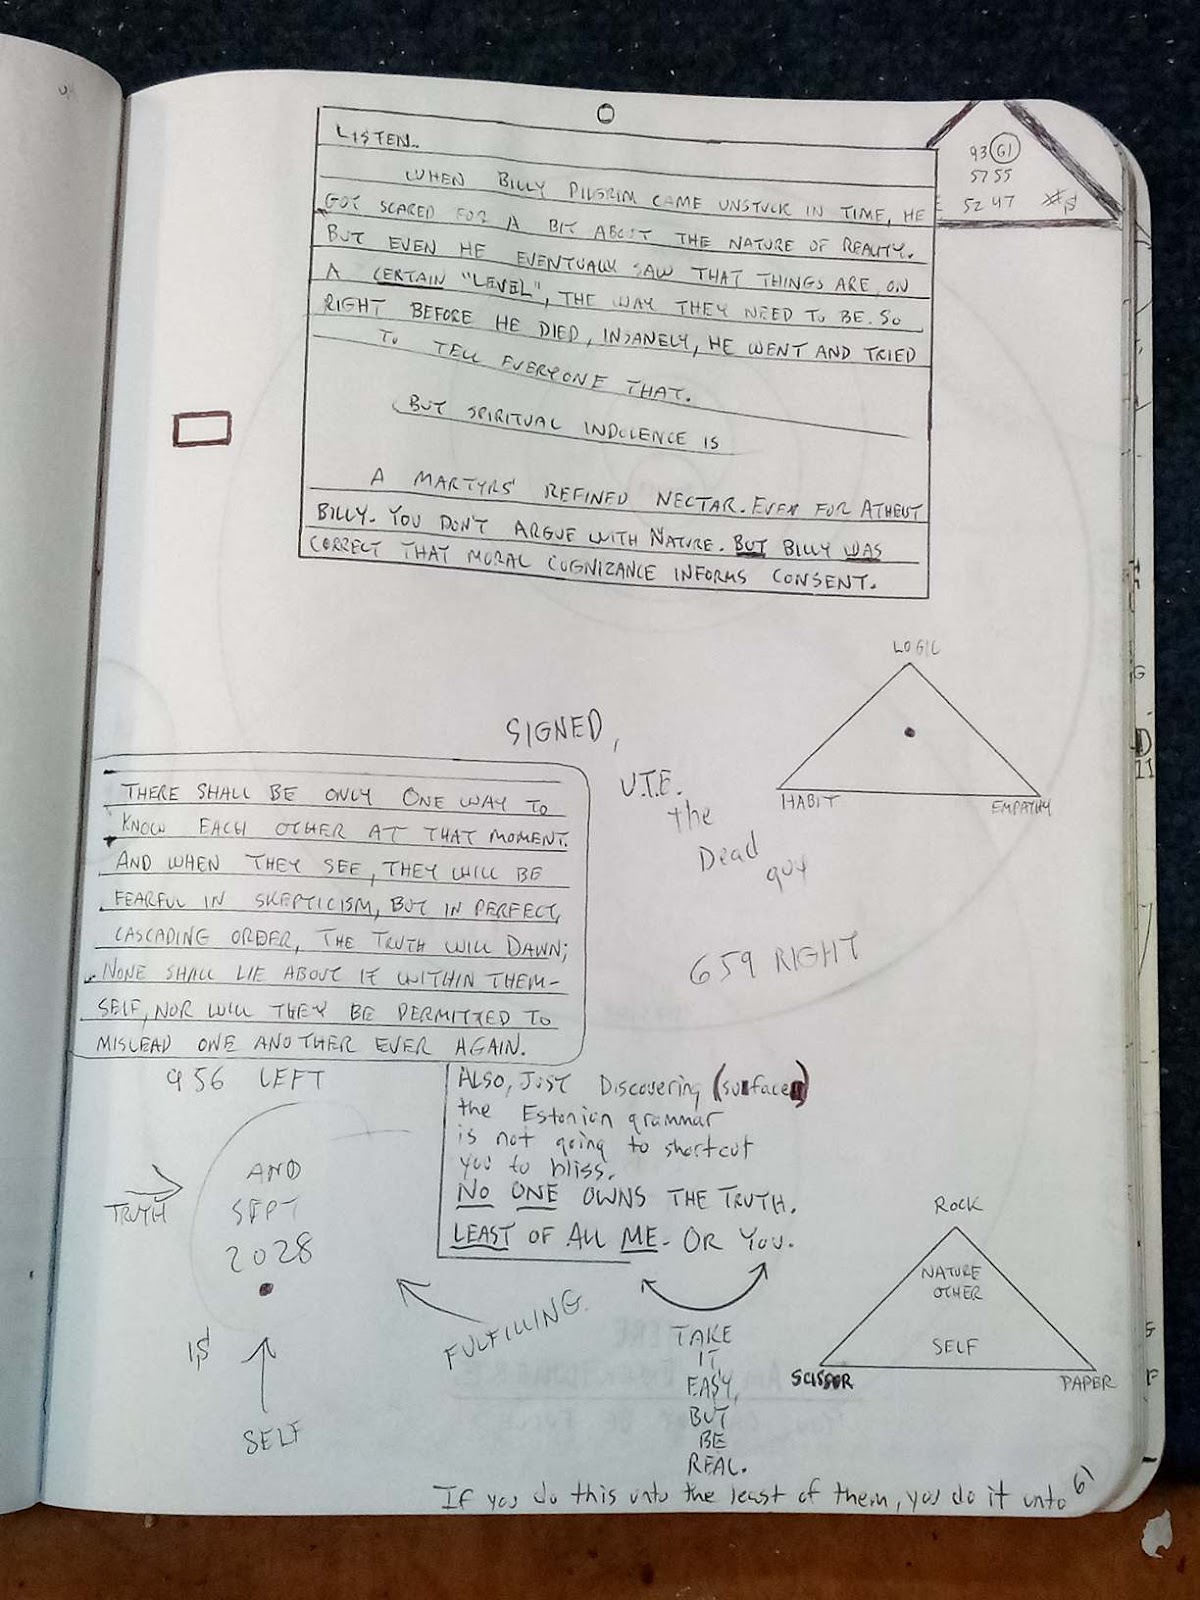 LISTEN.
WHEN BILLY PILGRIM CAME UNSTUCK IN TIME, HE
GOT SCARED FOR A BIT ABOUT THE NATURE OF REALITY.
BUT EVEN HE EVENTUALLY SAW THAT THINGS ARE, ON
A CERTAIN "LEVEL", THE WAY THEY NEED TO BE. SO
RIGHT BEFORE HE DIED, INSANELY, HE WENT AND TRIED
TO TELL EVERYONE THAT.
BUT SPIRITUAL INDOLENCE IS
A MARTYRS' REFINED NECTAR. EVEN FOR ATHEIST
BILLY. YOU DON'T ARGUE WITH NATURE. BUT BILLY WAS
CORRECT THAT MORAL COGNIZANCE INFORMS CONSENT.
93 61
5755
52 47
LOGIC
HABIT
EMPATHY
SIGNED,
U.T.E.
the
Dead
guy
659 RIGHT
THERE SHALL BE ONLY ONE WAY TO
KNOW EACH OTHER AT THAT MOMENT.
AND WHEN THEY SEE, THEY WILL BE
FEARFUL IN SKEPTICISM, BUT IN PERFECT,
CASCADING ORDER, THE TRUTH WILL DAWN;
NONE SHALL LIE ABOUT IT WITHIN THEM-
SELF, NOR WILL THEY BE PERMITTED TO
MISLEAD ONE ANOTHER EVER AGAIN.
956 LEFT
ALSO, JUST Discovering (surface)
the Estonian grammar
is not going to shortcut
you to bliss.
NO ONE OWNS THE TRUTH.
LEAST OF ALL ME. OR YOU.
TRUTH
AND
SEPT
2028
SELF
FULFILLING.
TAKE
IT
EASY,
BUT
BE
REAL.
ROCK
NATURE
OTHER
SELF
SCISSOR
PAPER
If you do this unto the least of them, you do it unto
61